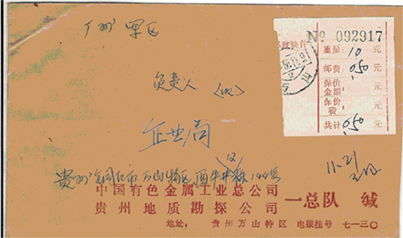 广州军区
№ 092917
重量: 10 克
邮费: 0.50 元
保价金额: 元
保价费: 元
共计: 0.50 元
负责人 (收)
企业局
贵州铜仁市万山特区酉牛井 100号
中国有色金属工业总公司
贵州地质勘探公司
一总队 缄
地址: 贵州万山特区 电报挂号 七一三〇